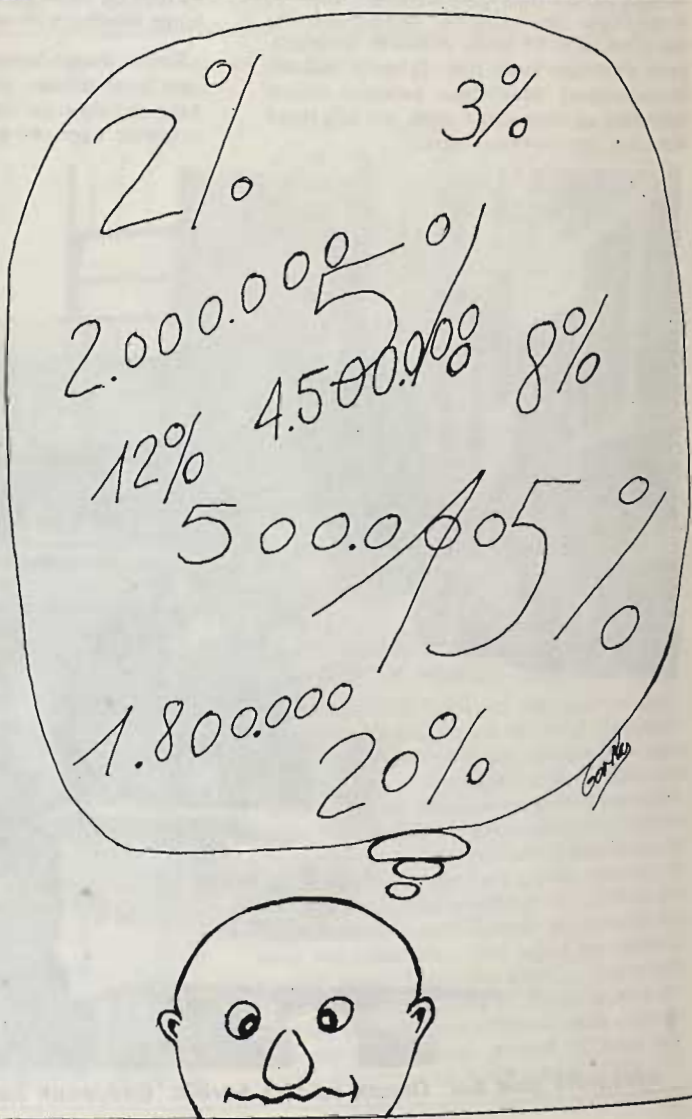 2% 3%
2.000.000 5%
4.500.000 8%
12%
500.000 15%
1.800.000
20%